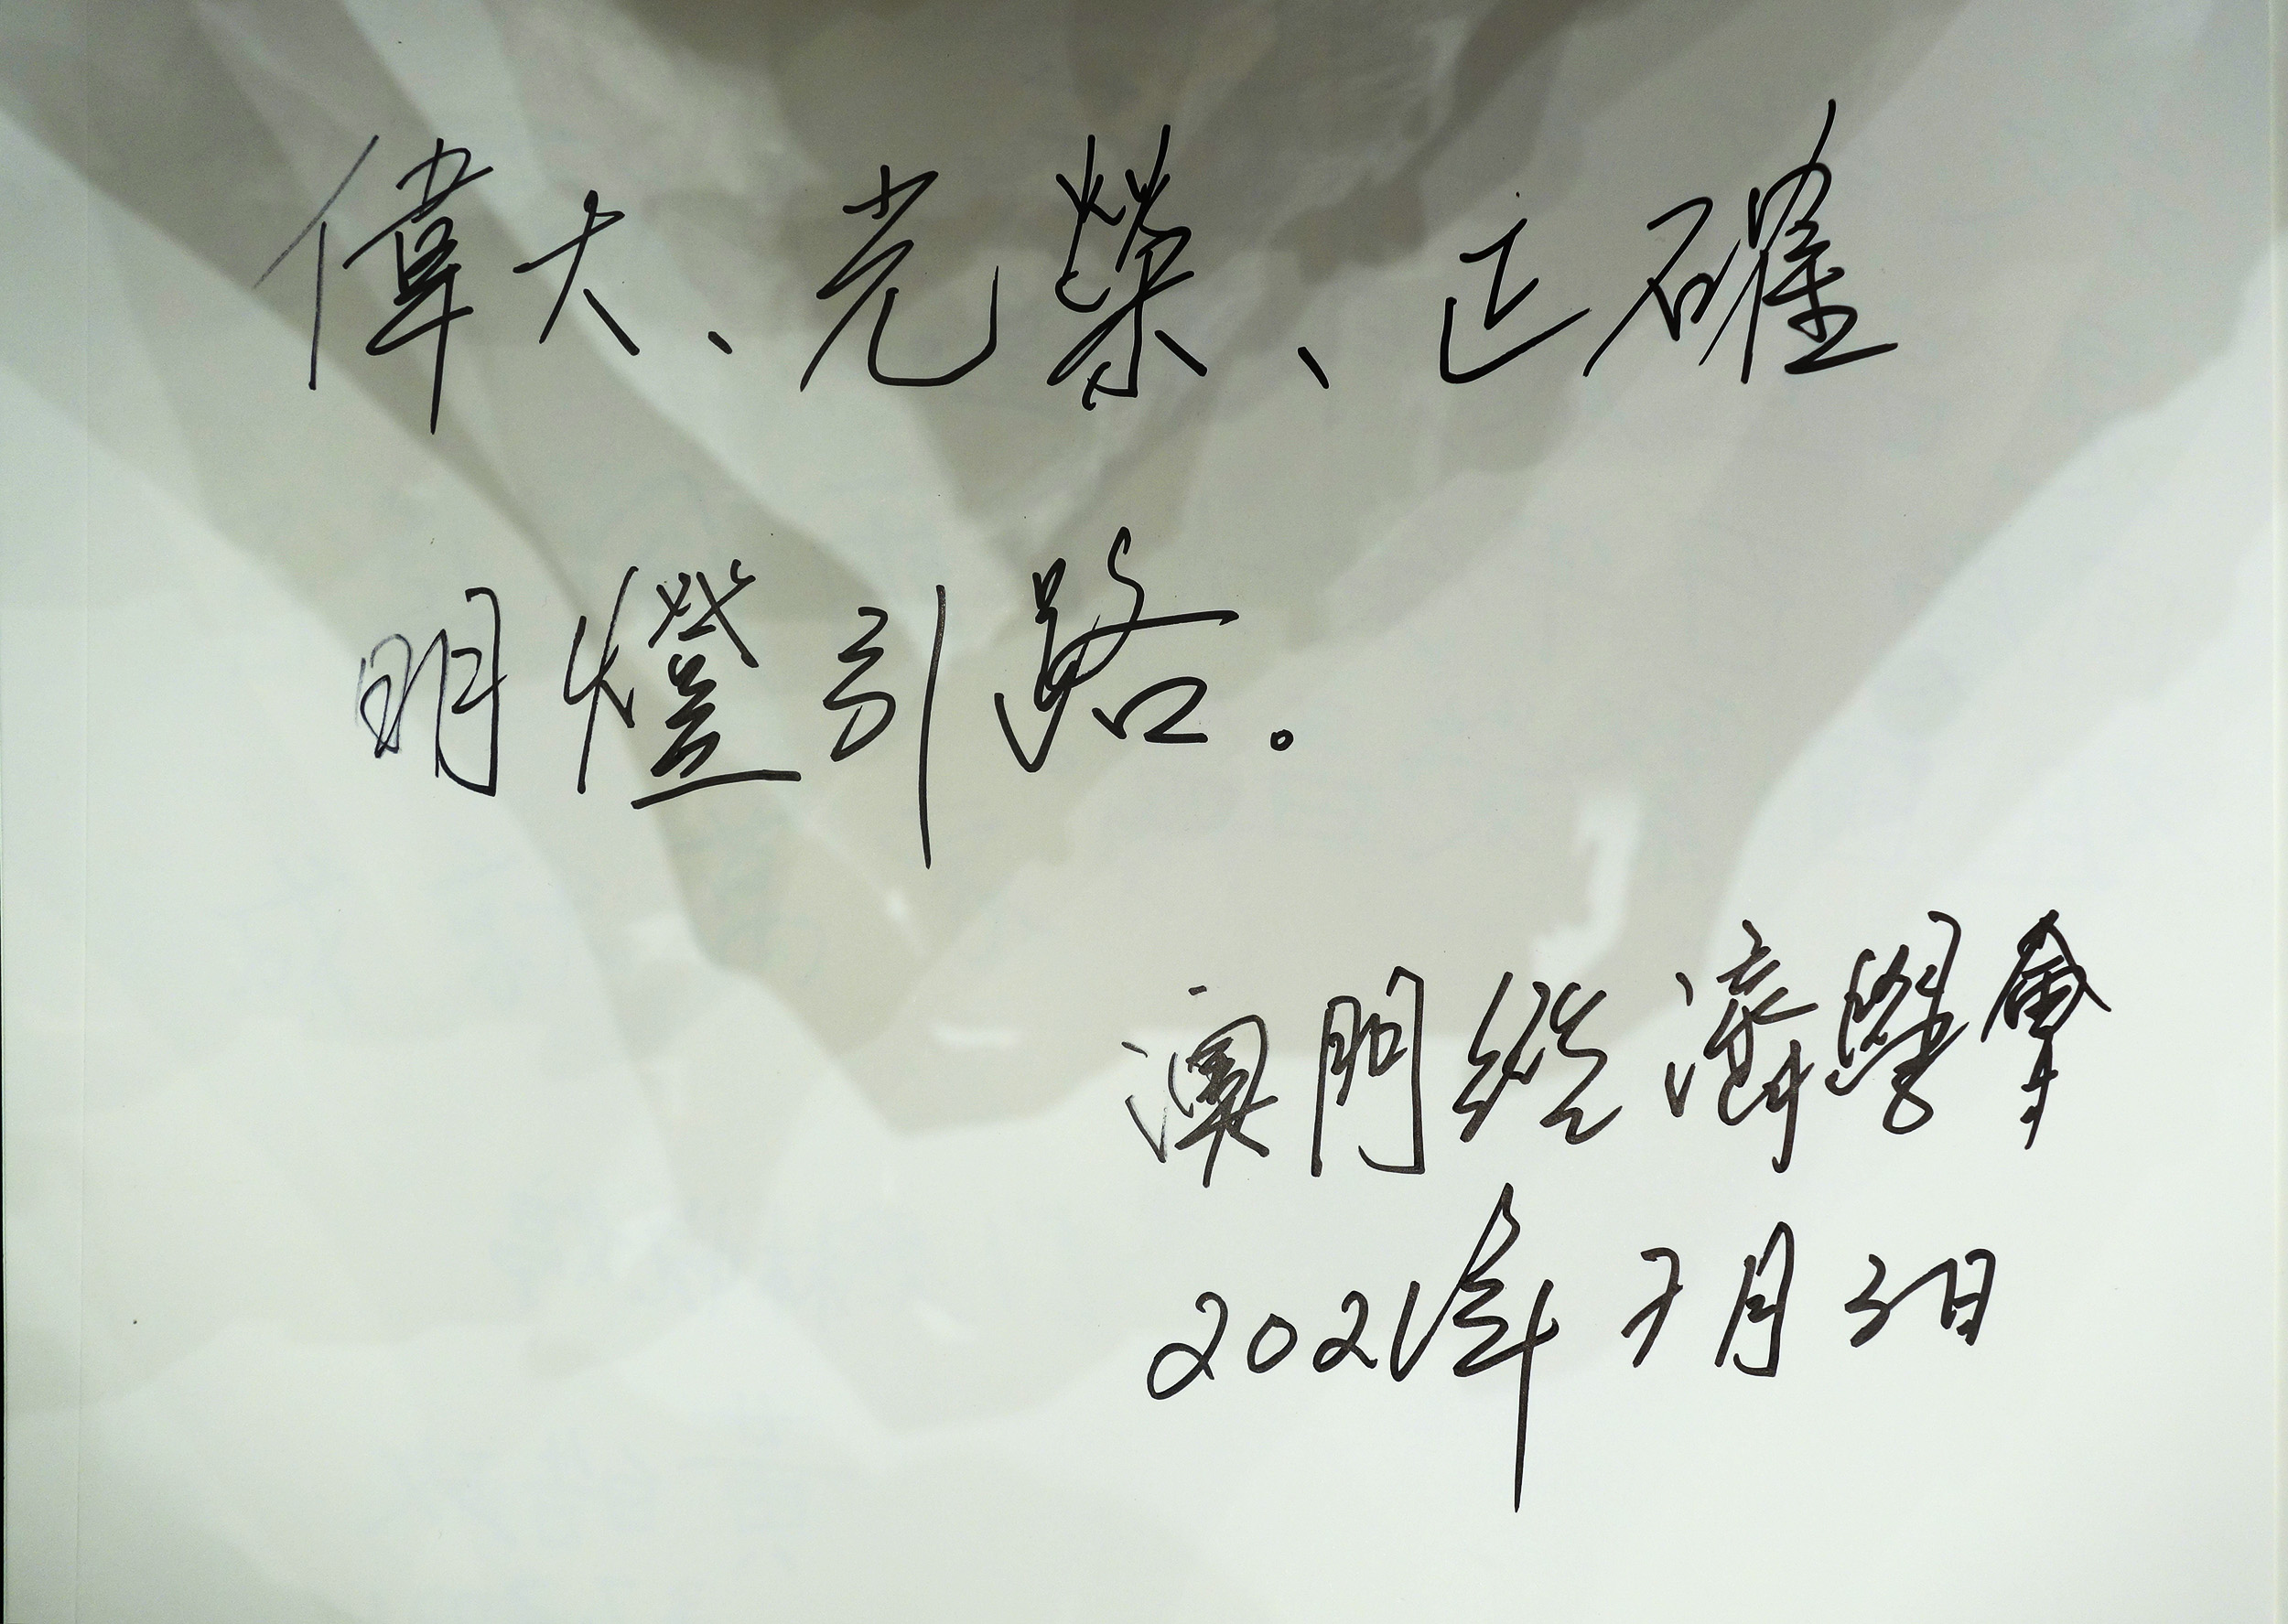 偉大、光榮、正確
明燈引路。
澳門經濟學會
2021年7月3日